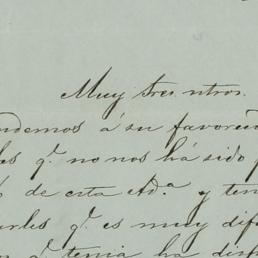 Muy Sres. ntros.
ndemos á su favorec
les q.e no nos há sido
de esta Ad.a y ten
arles q.e es muy dif
q.e tenia ha disp